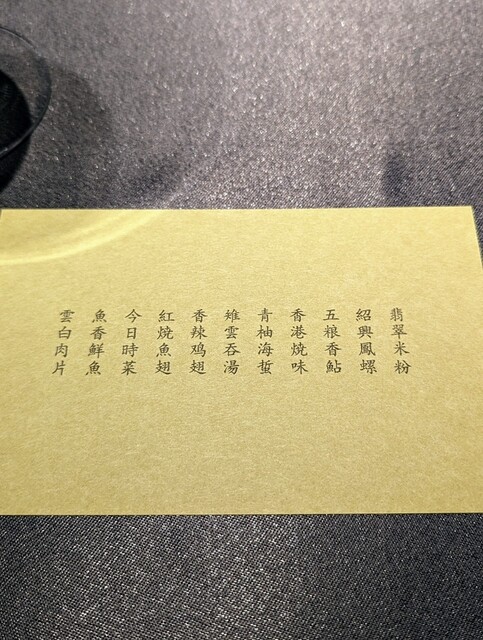 翡翠米粉
紹興鳳螺
五粮香鮎
香港焼味
青柚海蜇
雉雲吞湯
香辣鸡翅
紅焼魚翅
今日時菜
魚香鮮魚
雲白肉片